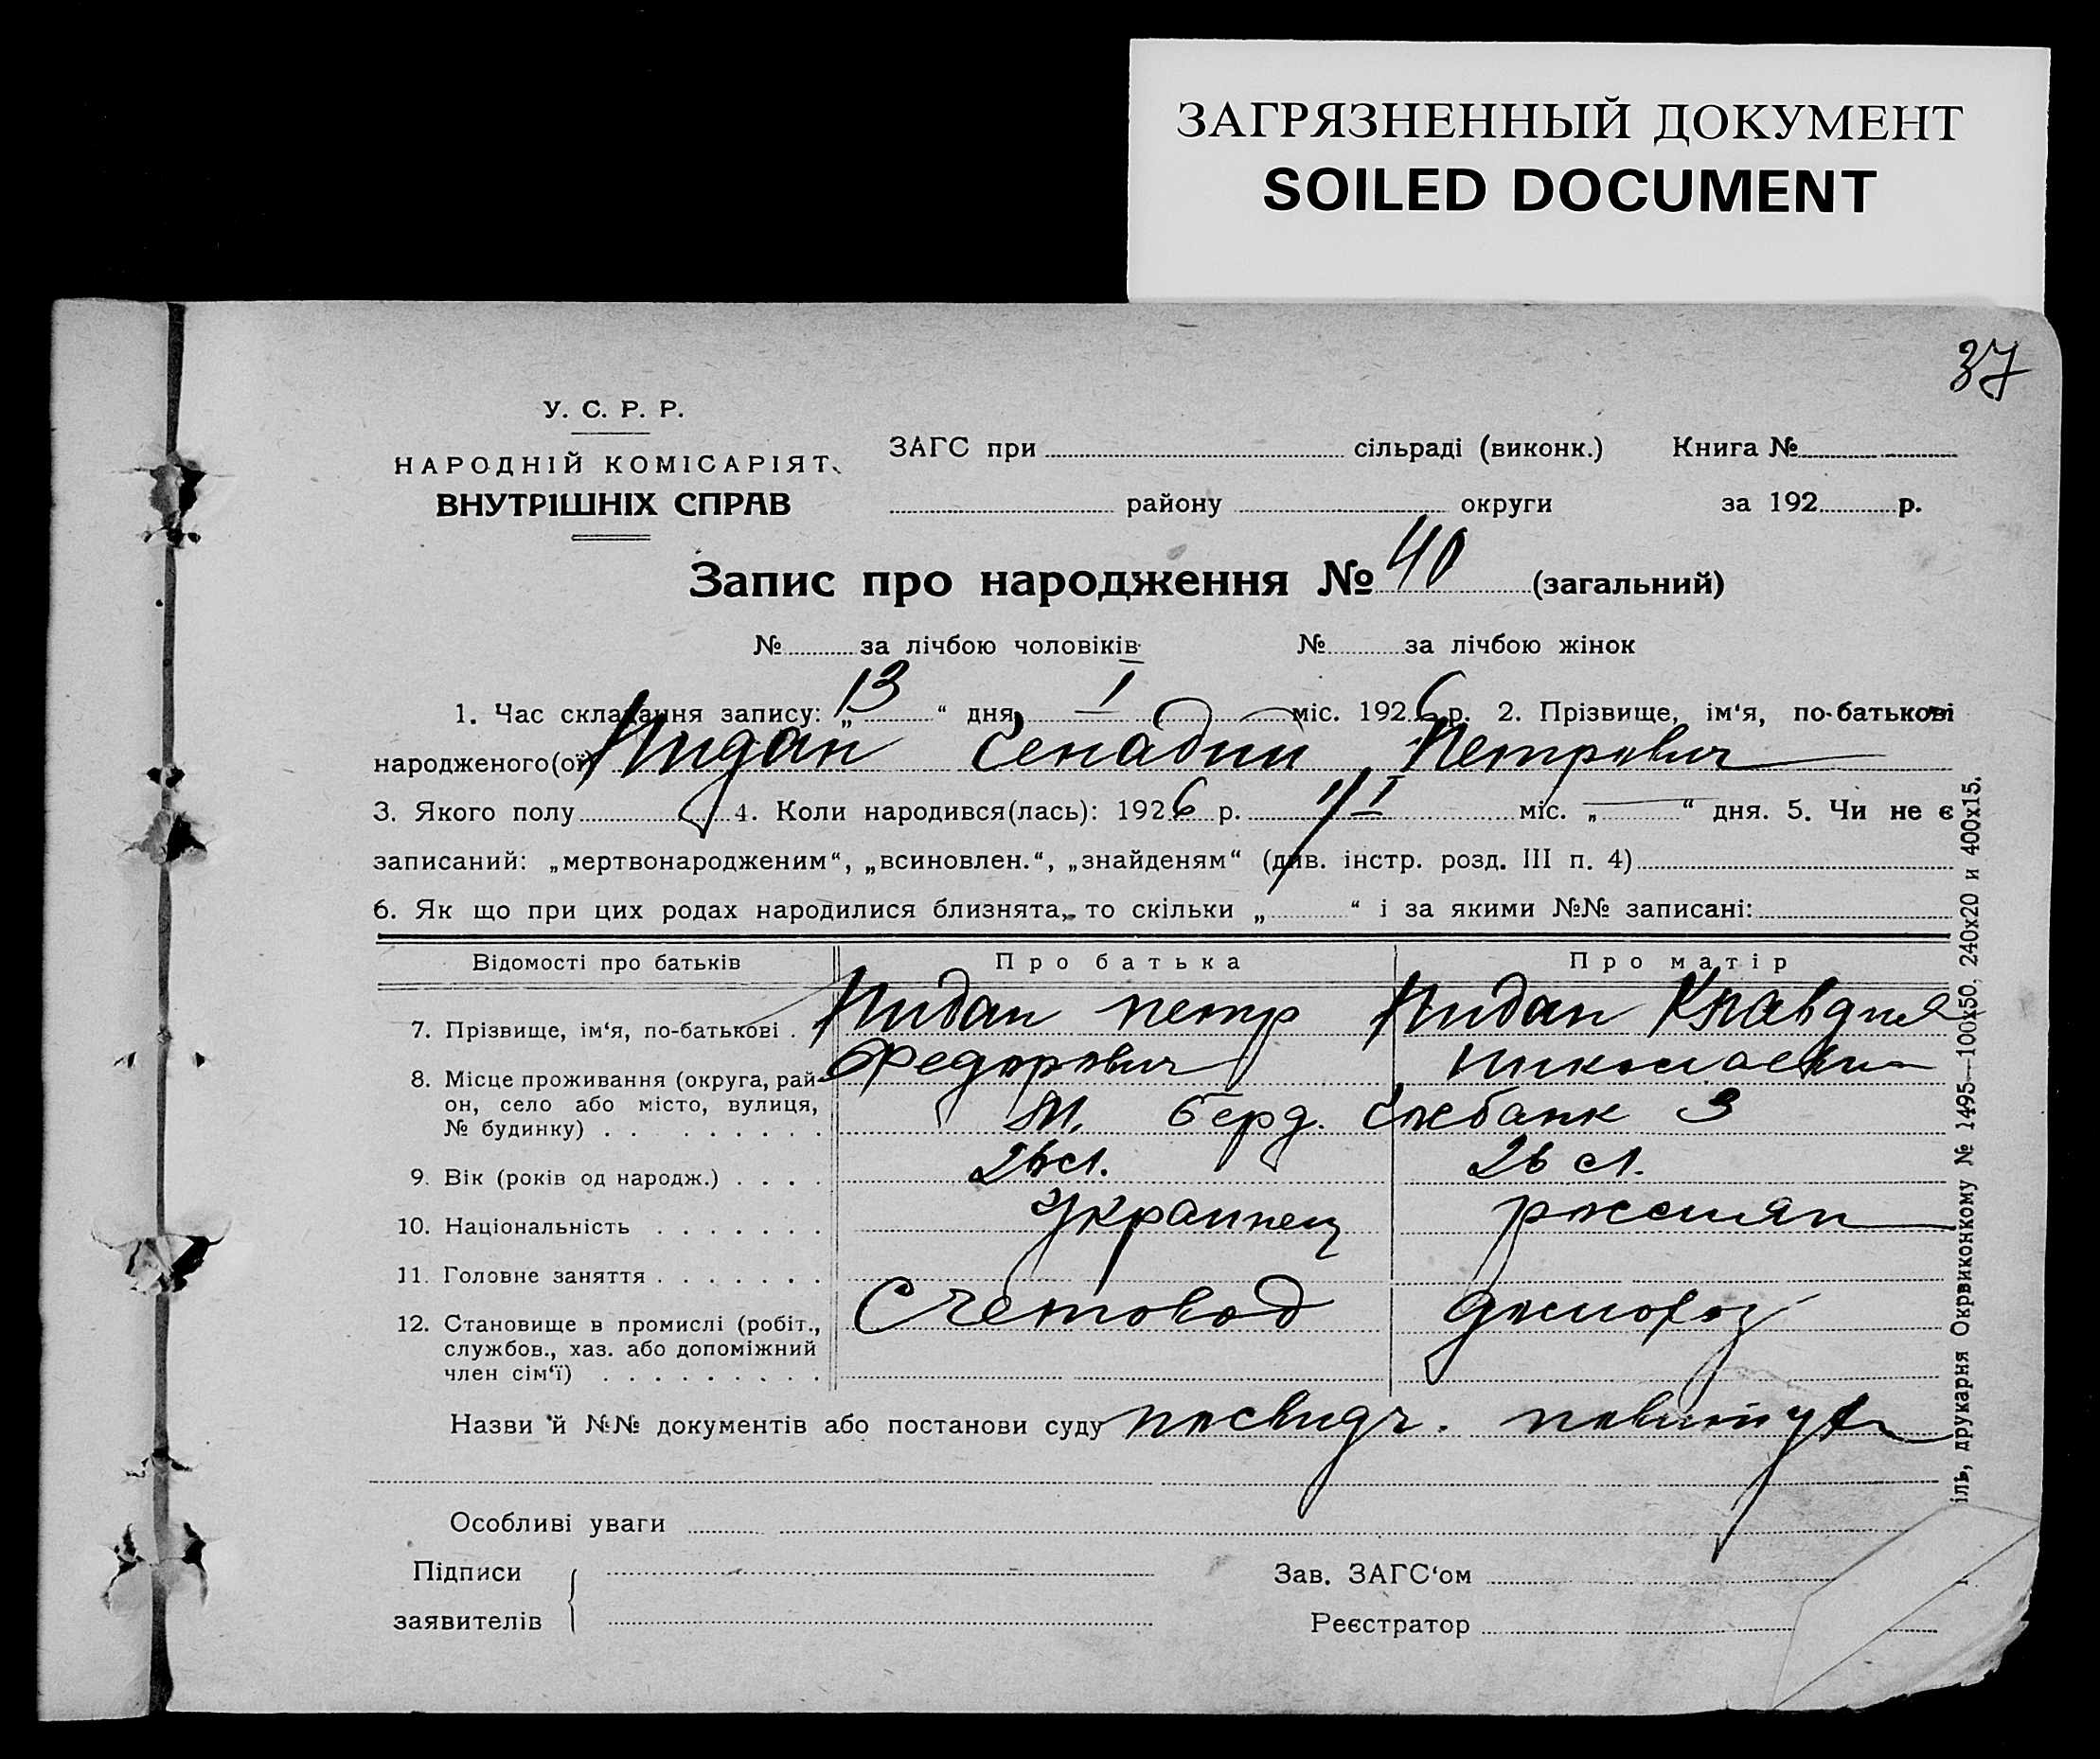 ЗАГРЯЗНЕННЫЙ ДОКУМЕНТ
SOILED DOCUMENT
37
У. С. Р. Р.
НАРОДНІЙ КОМІСАРІЯТ
ВНУТРІШНІХ СПРАВ
ЗАГС при сільраді (виконк.) Книга №
району округи за 192 р.
Запис про народження № 40 (загальний)
№ за лічбою чоловіків № за лічбою жінок
1. Час складання запису: „ 13 “ дня I міс. 1926 р. 2. Прізвище, ім‘я, по-батькові
народженого(ої) Генадий Петрович
3. Якого полу ч 4. Коли народився(лась): 1926 р. 1/I міс. „ — “ дня. 5. Чи не є
записаний: „мертвонародженим“, „всиновлен.“, „знайденям“ (див. інстр. розд. III п. 4)
6. Як що при цих родах народилися близнята, то скільки „ “ і за якими №№ записані:
Відомості про батьків Про батька Про матір
7. Прізвище, ім‘я, по-батькові . Петр Клавдия
Федорович Николаевн
8. Місце проживання (округа, рай-
он, село або місто, вулиця,
№ будинку) . . . . . . . . М. Берд. 3
9. Вік (років од народж.) . . . . 26 л. 26 л.
10. Національність . . . . . . . Украинец россиян
11. Головне заняття . . . . . . .
Счетовод домохоз
12. Становище в промислі (робіт.,
службов., хаз. або допоміжний
член сім‘ї) . . . . . . . . .
Назви й №№ документів або постанови суду посвидч.
Особливі уваги
Підписи
заявителів
Зав. ЗАГС‘ом
Реєстратор
іль, друкарня Окрвиконкому № 1495—100x50, 240x20 и 400x15.